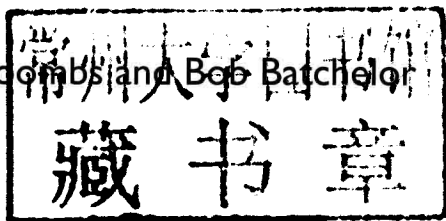 常州大学图书馆
oombs and Bob Batchelor
藏书章